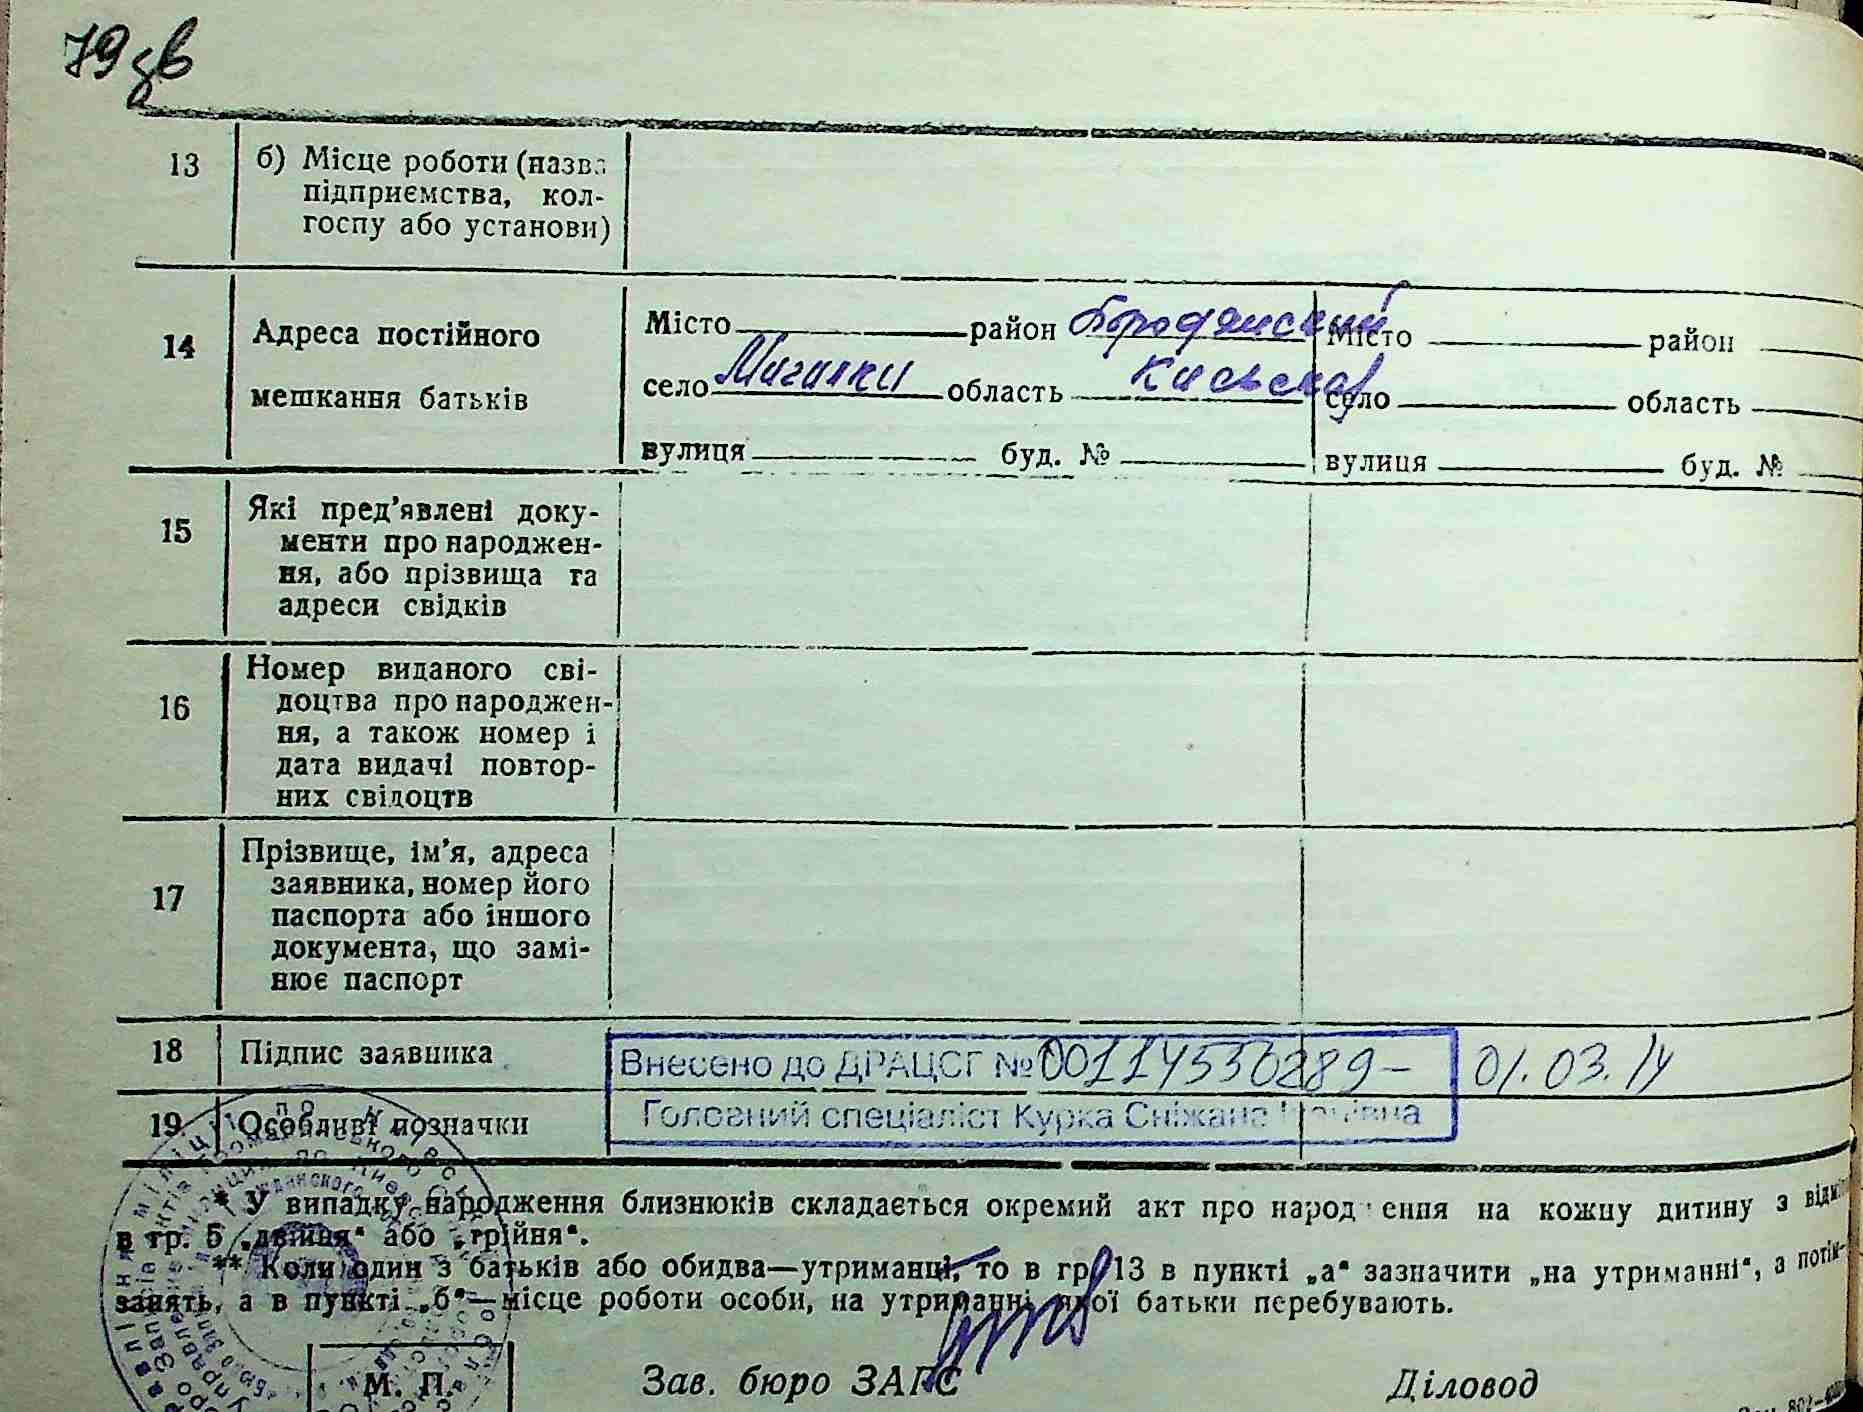 79 зв
13 б) Місце роботи (назва
підприємства, кол-
госпу або установи)
Місто район Бородянский Місто район
14 Адреса постійного
село Мигалки область Киевская село область
мешкання батьків
вулиця буд. № вулиця буд. №
15 Які пред'явлені доку-
менти про народжен-
ня, або прізвища та
адреси свідків
16 Номер виданого сві-
доцтва про народжен-
ня, а також номер і
дата видачі повтор-
них свідоцтв
17 Прізвище, ім'я, адреса
заявника, номер його
паспорта або іншого
документа, що замі-
нює паспорт
18 Підпис заявника Внесено до ДРАЦСГ № 00114530289 – 01.03.14
19 Особливі позначки Головний спеціаліст Курка Сніжана
* У випадку народження близнюків складається окремий акт про народження на кожну дитину з
в гр. 5 „двійня“ або „трійня“.
** Коли один з батьків або обидва—утриманці, то в гр. 13 в пункті „а“ зазначити „на утриманні“, а потім—
занять, а в пункті „б“—місце роботи особи, на утриманні якої батьки перебувають.
М. П. Зав. бюро ЗАГС Діловод